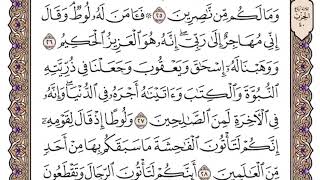 وَمَا لَكُم مِّن نَّٰصِرِينَ ٢٥ ۞ فَـَٔامَنَ لَهُۥ لُوطٌۘ وَقَالَ
إِنِّي مُهَاجِرٌ إِلَىٰ رَبِّيٓۖ إِنَّهُۥ هُوَ ٱلْعَزِيزُ ٱلْحَكِيمُ ٢٦
وَوَهَبْنَا لَهُۥٓ إِسْحَٰقَ وَيَعْقُوبَ وَجَعَلْنَا فِي ذُرِّيَّتِهِ
ٱلنُّبُوَّةَ وَٱلْكِتَٰبَ وَءَاتَيْنَٰهُ أَجْرَهُۥ فِي ٱلدُّنْيَاۖ وَإِنَّهُۥ
فِي ٱلْأٓخِرَةِ لَمِنَ ٱلصَّٰلِحِينَ ٢٧ وَلُوطًا إِذْ قَالَ لِقَوْمِهِۦٓ
إِنَّكُمْ لَتَأْتُونَ ٱلْفَٰحِشَةَ مَا سَبَقَكُم بِهَا مِنْ أَحَدٍ
مِّنَ ٱلْعَٰلَمِينَ ٢٨ أَئِنَّكُمْ لَتَأْتُونَ ٱلرِّجَالَ وَتَقْطَعُونَ
الحزب
٤٠